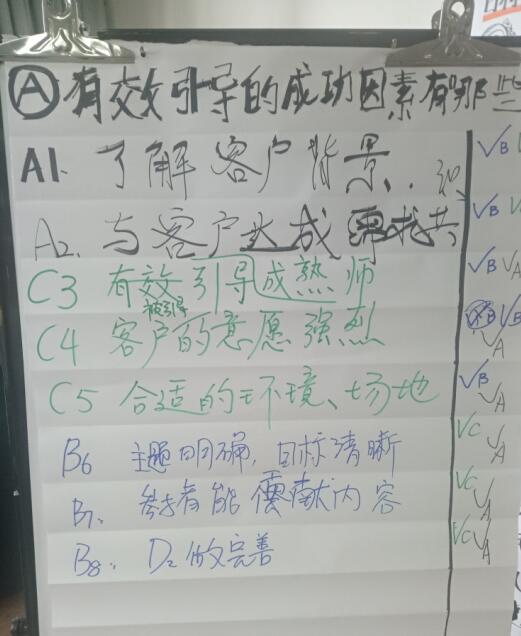 Ⓐ 有效引导的成功因素有哪些
A1. 了解客户背景.
A2. 与客户达成需求共
C3 有效引导成熟师
C4 客户的被引导意愿强烈
C5 合适的环境、场地
B6 主题明确,目标清晰
B7. 参与者能贡献内容
B8. D2的完善
√B
√B
√B √A
√B √A
√B √A
√C √A
√C √A
√C √A